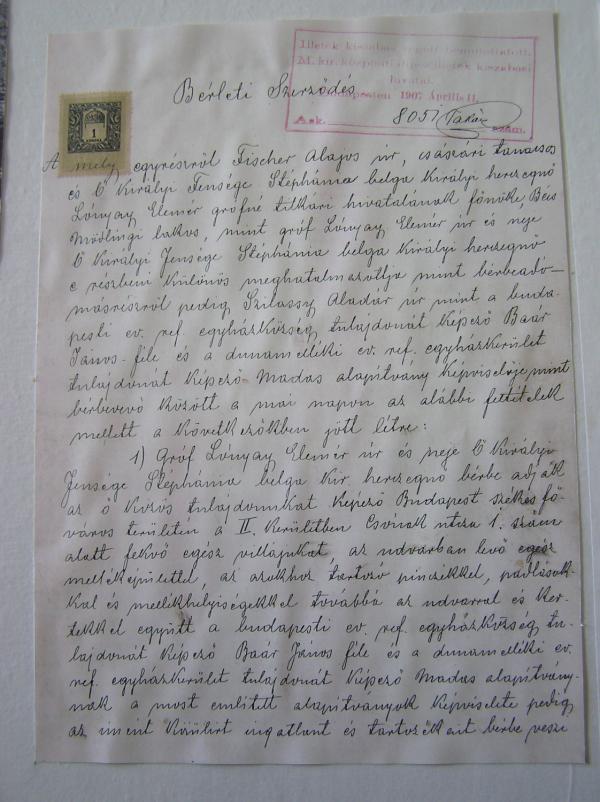 Illeték kiszabás végett bemutattatott.
M. kir. központi díj- és illeték kiszabási
hivatal.
Budapesten 1907 Április 11.
A sk. 8051 szám.
1
KORONA
Bérleti Szerződés
A mely egyrészről Fischer Alajos úr, császári tanácsos
és Ő Királyi Fensége Stephánia belga Királyi herczegnő
Lónyay Elemér grófné titkári hivatalának főnöke, Bécs
Mödlingi lakos, mint gróf Lónyay Elemér úr és neje
Ő Királyi Fensége Stephánia belga Királyi herczegnő
e részbeni Különös meghatalmazottja mint bérbeadó –
másrészről pedig Szilassy Aladár úr mint a buda-
pesti ev. ref. egyházközség tulajdonát Képező Baar
János-féle és a dunamelléki ev. ref. egyházkerület
tulajdonát Képező Madas alapítvány Képviselője, mint
bérbevevő Között a mai napon az alábbi feltételek
mellett a Következőkben jött létre:
1) Gróf Lónyay Elemér úr és neje Ő Királyi
Fensége Stephánia belga Kir. herczegnő bérbe adják
az ő Közös tulajdonukat Képező Budapest székes fő-
város területén a II. Kerületben Csónak utcza 1. szám
alatt fekvő egész villájukat, az udvarban levő egész
melléképülettel, az azokhoz tartozó pinczékkel, padlások-
kal és mellékhelyiségekkel továbbá az udvarral és Ker-
tekkel együtt a budapesti ev. ref. egyházközség tu-
lajdonát Képező Baar János féle és a dunamelléki ev.
ref. egyházkerület tulajdonát Képező Madas alapítvány-
nak a most említett alapítványok Képviselete pedig
az imént Körülírt ingatlant és tartozékait bérbe veszi